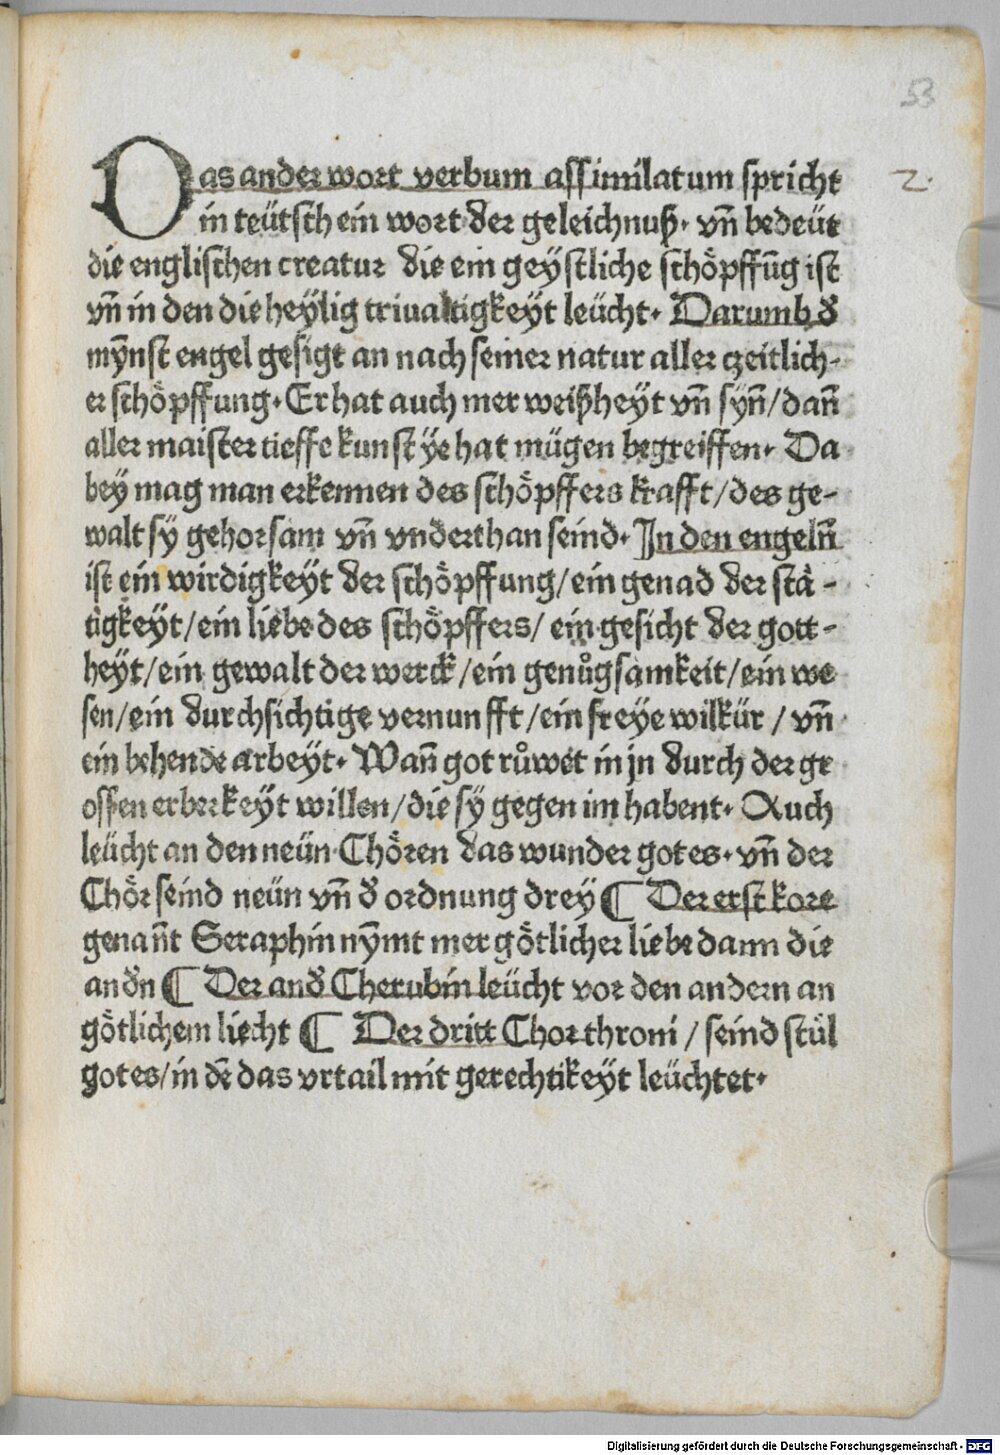 53
Das ander wort verbum assimilatum spricht
2.
in teütsch ein wort der geleichnuß. vñ bedeüt
die englischen creatur die ein geystliche schöpffūg ist
vñ in den die heÿlig triualtigkeÿt leücht. Darumb đ
mÿnst engel gesigt an nach seiner natur aller czeitlich-
er schöpffung. Er hat auch mer weißheyt vñ syñ/dañ
aller maister tieffe kunst ÿe hat mügen begreiffen. Da
bey mag man erkennen des schöpffers krafft/des ge-
walt sÿ gehorsam vñ vnderthan seind. In den engelñ
ist ein wirdigkeyt der schöpffung/ein genad der stä-
tigkeyt/ein liebe des schöpffers/ ein gesicht der gott-
heyt/ein gewalt der werck/ein genůgsamkeit/ein we
sen/ein durchsichtige vernunfft/ein freye wilkür/ vñ
ein behende arbeyt. Wañ got růwet in jn durch der gr
ossen erberkeyt willen/die sÿ gegen im habent. Auch
leücht an den neün Chören das wunder gotes. vñ der
Chör seind neün vñ đ ordnung drey ¶ Der erst kore
genañt Seraphin nÿmt mer götlicher liebe dann die
andn ¶ Der and Cherubin leücht vor den andern an
götlichem liecht ¶ Der dritt Chor throni / seind stül
gotes/in dē das vrtail mit gerechtikeyt leüchtet.
Digitalisierung gefördert durch die Deutsche Forschungsgemeinschaft - DFG